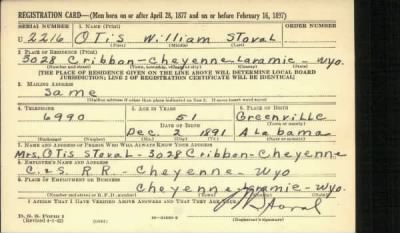 REGISTRATION CARD—(Men born on or after April 28, 1877 and on or before February 16, 1897)
SERIAL NUMBER 1. NAME (Print) ORDER NUMBER
U 2216 OTis William Stoval
(First) (Middle) (Last)
2. PLACE OF RESIDENCE (Print)
3028 Cribbon-Cheyenne-Laramie-Wyo.
(Number and street) (Town, township, village, or city) (County) (State)
[THE PLACE OF RESIDENCE GIVEN ON THE LINE ABOVE WILL DETERMINE LOCAL BOARD
JURISDICTION; LINE 2 OF REGISTRATION CERTIFICATE WILL BE IDENTICAL]
3. MAILING ADDRESS
Same
[Mailing address if other than place indicated on line 2. If same insert word same]
4. TELEPHONE 5. AGE IN YEARS 6. PLACE OF BIRTH
6990 51 Greenville
DATE OF BIRTH (Town or county)
Dec. 2 1891 Alabama
(Exchange) (Number) (Mo.) (Day) (Yr.) (State or country)
7. NAME AND ADDRESS OF PERSON WHO WILL ALWAYS KNOW YOUR ADDRESS
Mrs. OTis Stoval-3028 Cribbon-Cheyenne
8. EMPLOYER'S NAME AND ADDRESS
C. & S. R.R. - Cheyenne - Wyo
9. PLACE OF EMPLOYMENT OR BUSINESS
Cheyenne-Laramie-Wyo.
(Number and street or R. F. D. number) (Town) (County) (State)
I AFFIRM THAT I HAVE VERIFIED ABOVE ANSWERS AND THAT THEY ARE TRUE.
D. S. S. Form 1
(Revised 4-1-42)
(Registrant's signature)